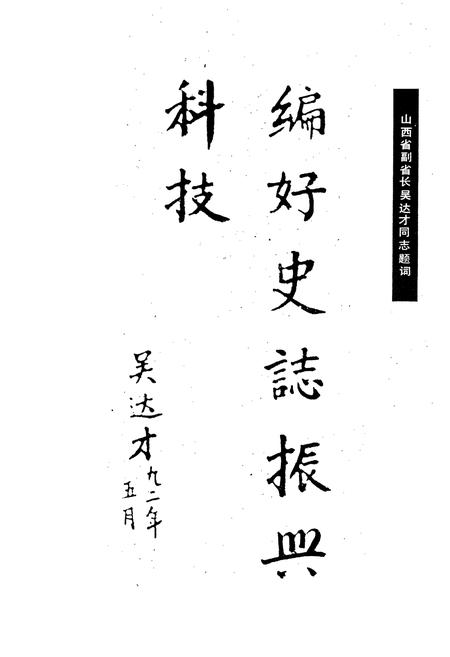 山西省副省长吴达才同志题词
编好史誌振兴
科技
吴达才
九二年
五月